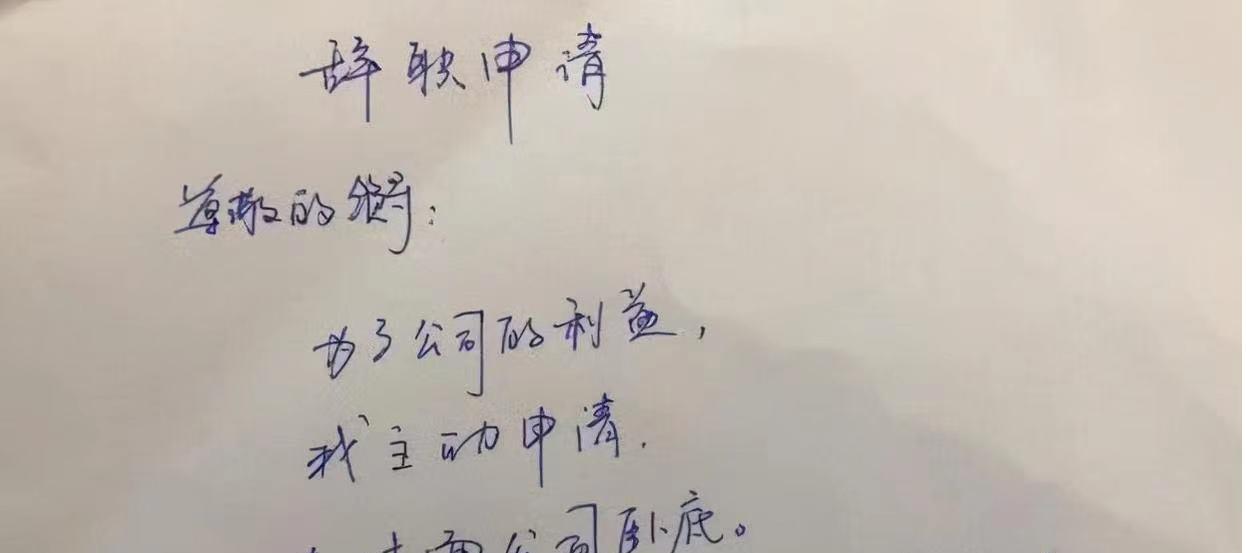 辞职申请
尊敬的领导:
为了公司的利益,
我主动申请.
公司卧底。